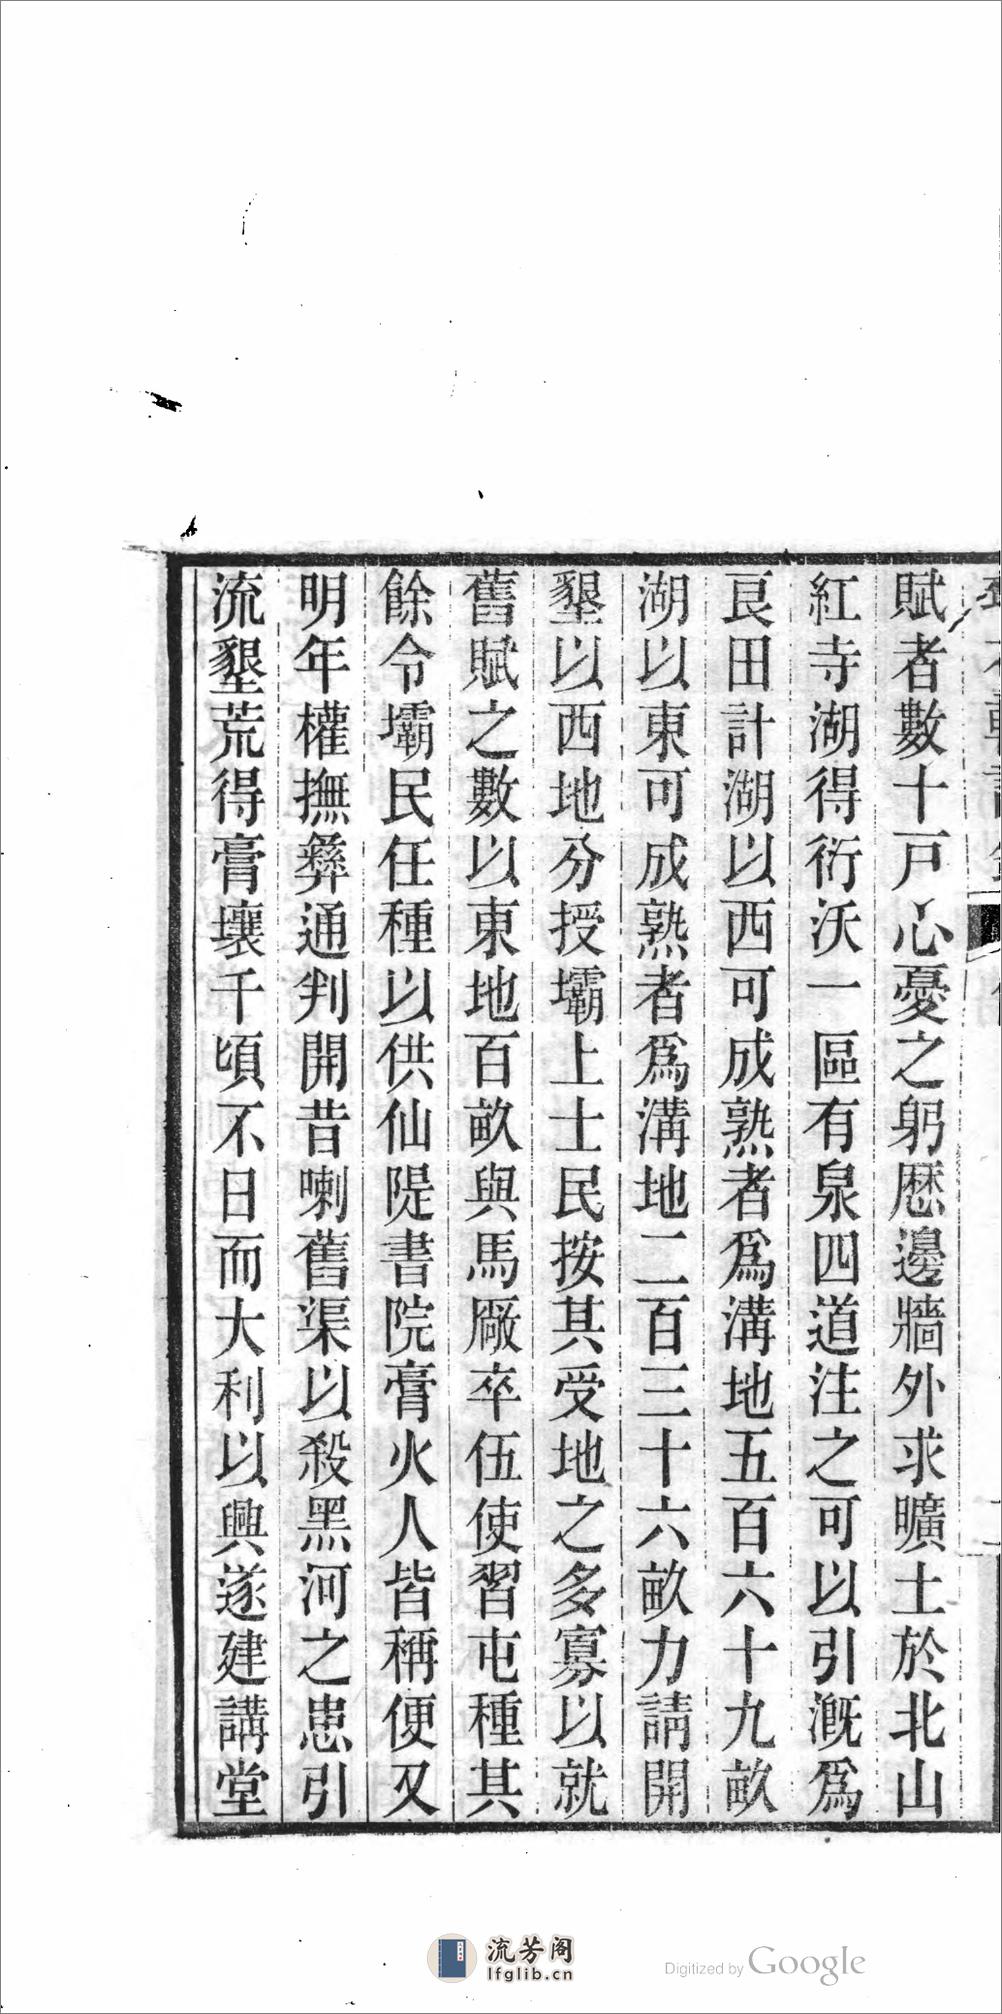 賦者數十戸心憂之躬歴邊牆外求曠土於北山
紅寺湖得衍沃一區有泉四道注之可以引漑爲
良田計湖以西可成熟者爲溝地五百六十九畝
湖以東可成熟者爲溝地二百三十六畝力請開
墾以西地分授壩上士民按其受地之多寡以就
舊賦之數以東地百畝與馬廠卒伍使習屯種其
餘令壩民任種以供仙隄書院膏火人皆稱便又
明年權撫彝通判開昔喇舊渠以殺黑河之患引
流墾荒得膏壤千頃不日而大利以興遂建講堂
流芳阁
lfglib.cn
Digitized by Google